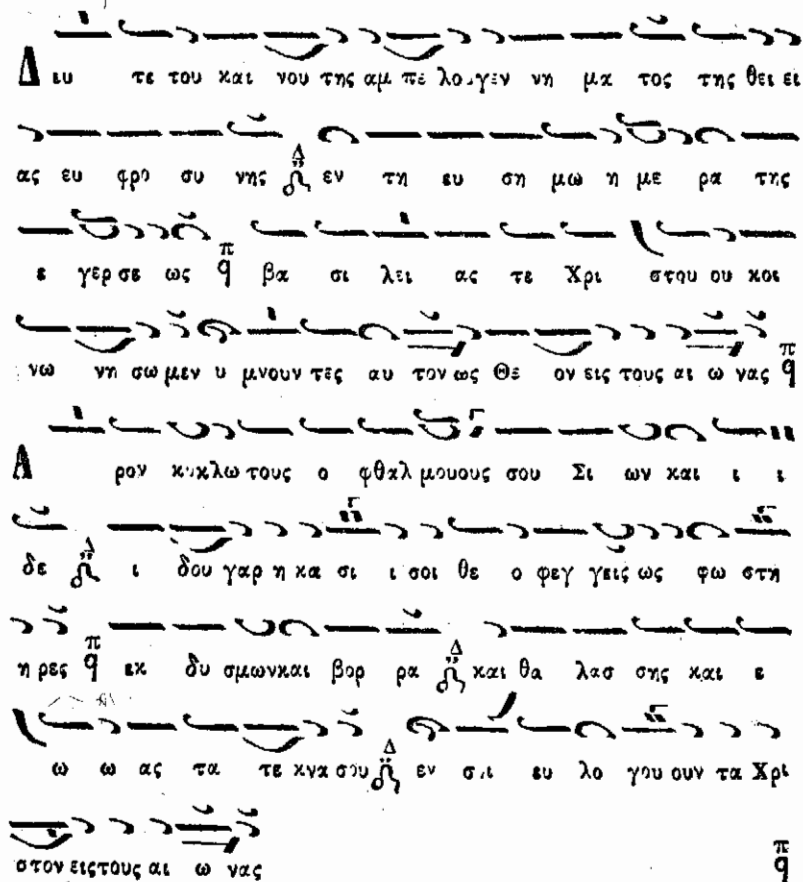 Δευ τε του και νου της αμ πε λου γεν νη μα τος της θει ει
ας ευ φρο συ νης Δ εν τη ευ ση μω η με ρα της
ε γερ σε ως π q βα σι λει ας τε Χρι στου ου κοι
νω νη σω μεν υ μνουν τες αυ τον ως Θε ον εις τους αι ω νας π q
Α ρον κυκλω τους ο φθαλ μουους σου Σι ων και ι ι
δε Δ ι δου γαρ η κα σι ι σοι θε ο φεγ γεις ως φω στη
η ρες π q εκ δυ σμων και βορ ρα Δ και θα λασ σης και ε
ω ω ας τα τε κνα σου Δ εν σοι ευ λο γου ουν τα Χρι
στον εις τους αι ω νας π q